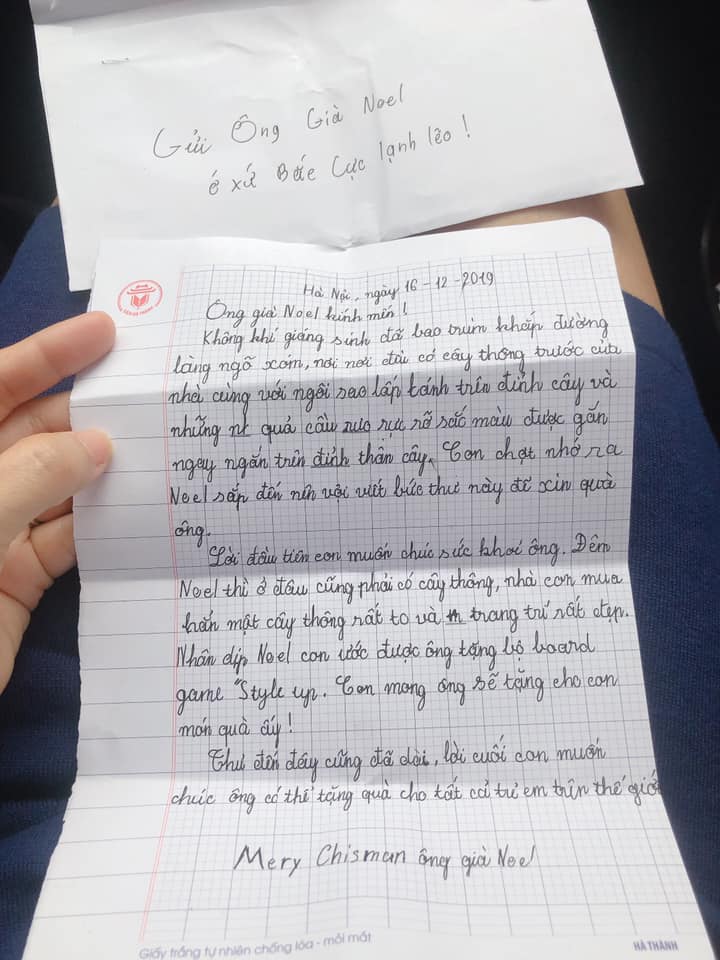 Gửi Ông Già Noel
ở xứ Bắc Cực lạnh lẽo !
Hà Nội, ngày 16-12-2019
Ông già Noel kính mến !
Không khí giáng sinh đã bao trùm khắp đường
làng ngõ xóm, nơi nơi đâu có cây thông trước cửa
nhà cùng với ngôi sao lấp lánh trên đỉnh cây và
những quả cầu rực rỡ sắc màu được gắn
ngay ngắn trên thân cây. Con chợt nhớ ra
Noel sắp đến nên vội viết bức thư này để xin quà
ông.
Lời đầu tiên con muốn chúc sức khoẻ ông. Đêm
Noel thì ở đâu cũng phải có cây thông, nhà con mua
hẳn một cây thông rất to và trang trí rất đẹp.
Nhân dịp Noel con ước được ông tặng bộ board
game "Style up. Con mong ông sẽ tặng cho con
món quà ấy !
Thư đến đây cũng đã dài, lời cuối con muốn
chúc ông có thể tặng quà cho tất cả trẻ em trên thế giới
Mery Chisman ông già Noel
Giấy trắng tự nhiên chống lóa - mỏi mắt
HÀ THÀNH